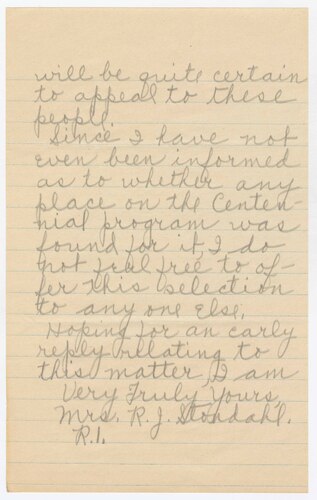 will be quite certain
to appeal to these
people.
Since I have not
even been informed
as to whether any
place on the Centen-
nial program was
found for it, I do
not feel free to of-
fer this selection
to any one else.
Hoping for an early
reply relating to
this matter, I am
Very Truly Yours,
Mrs. R. J. Stondahl.
R.1.